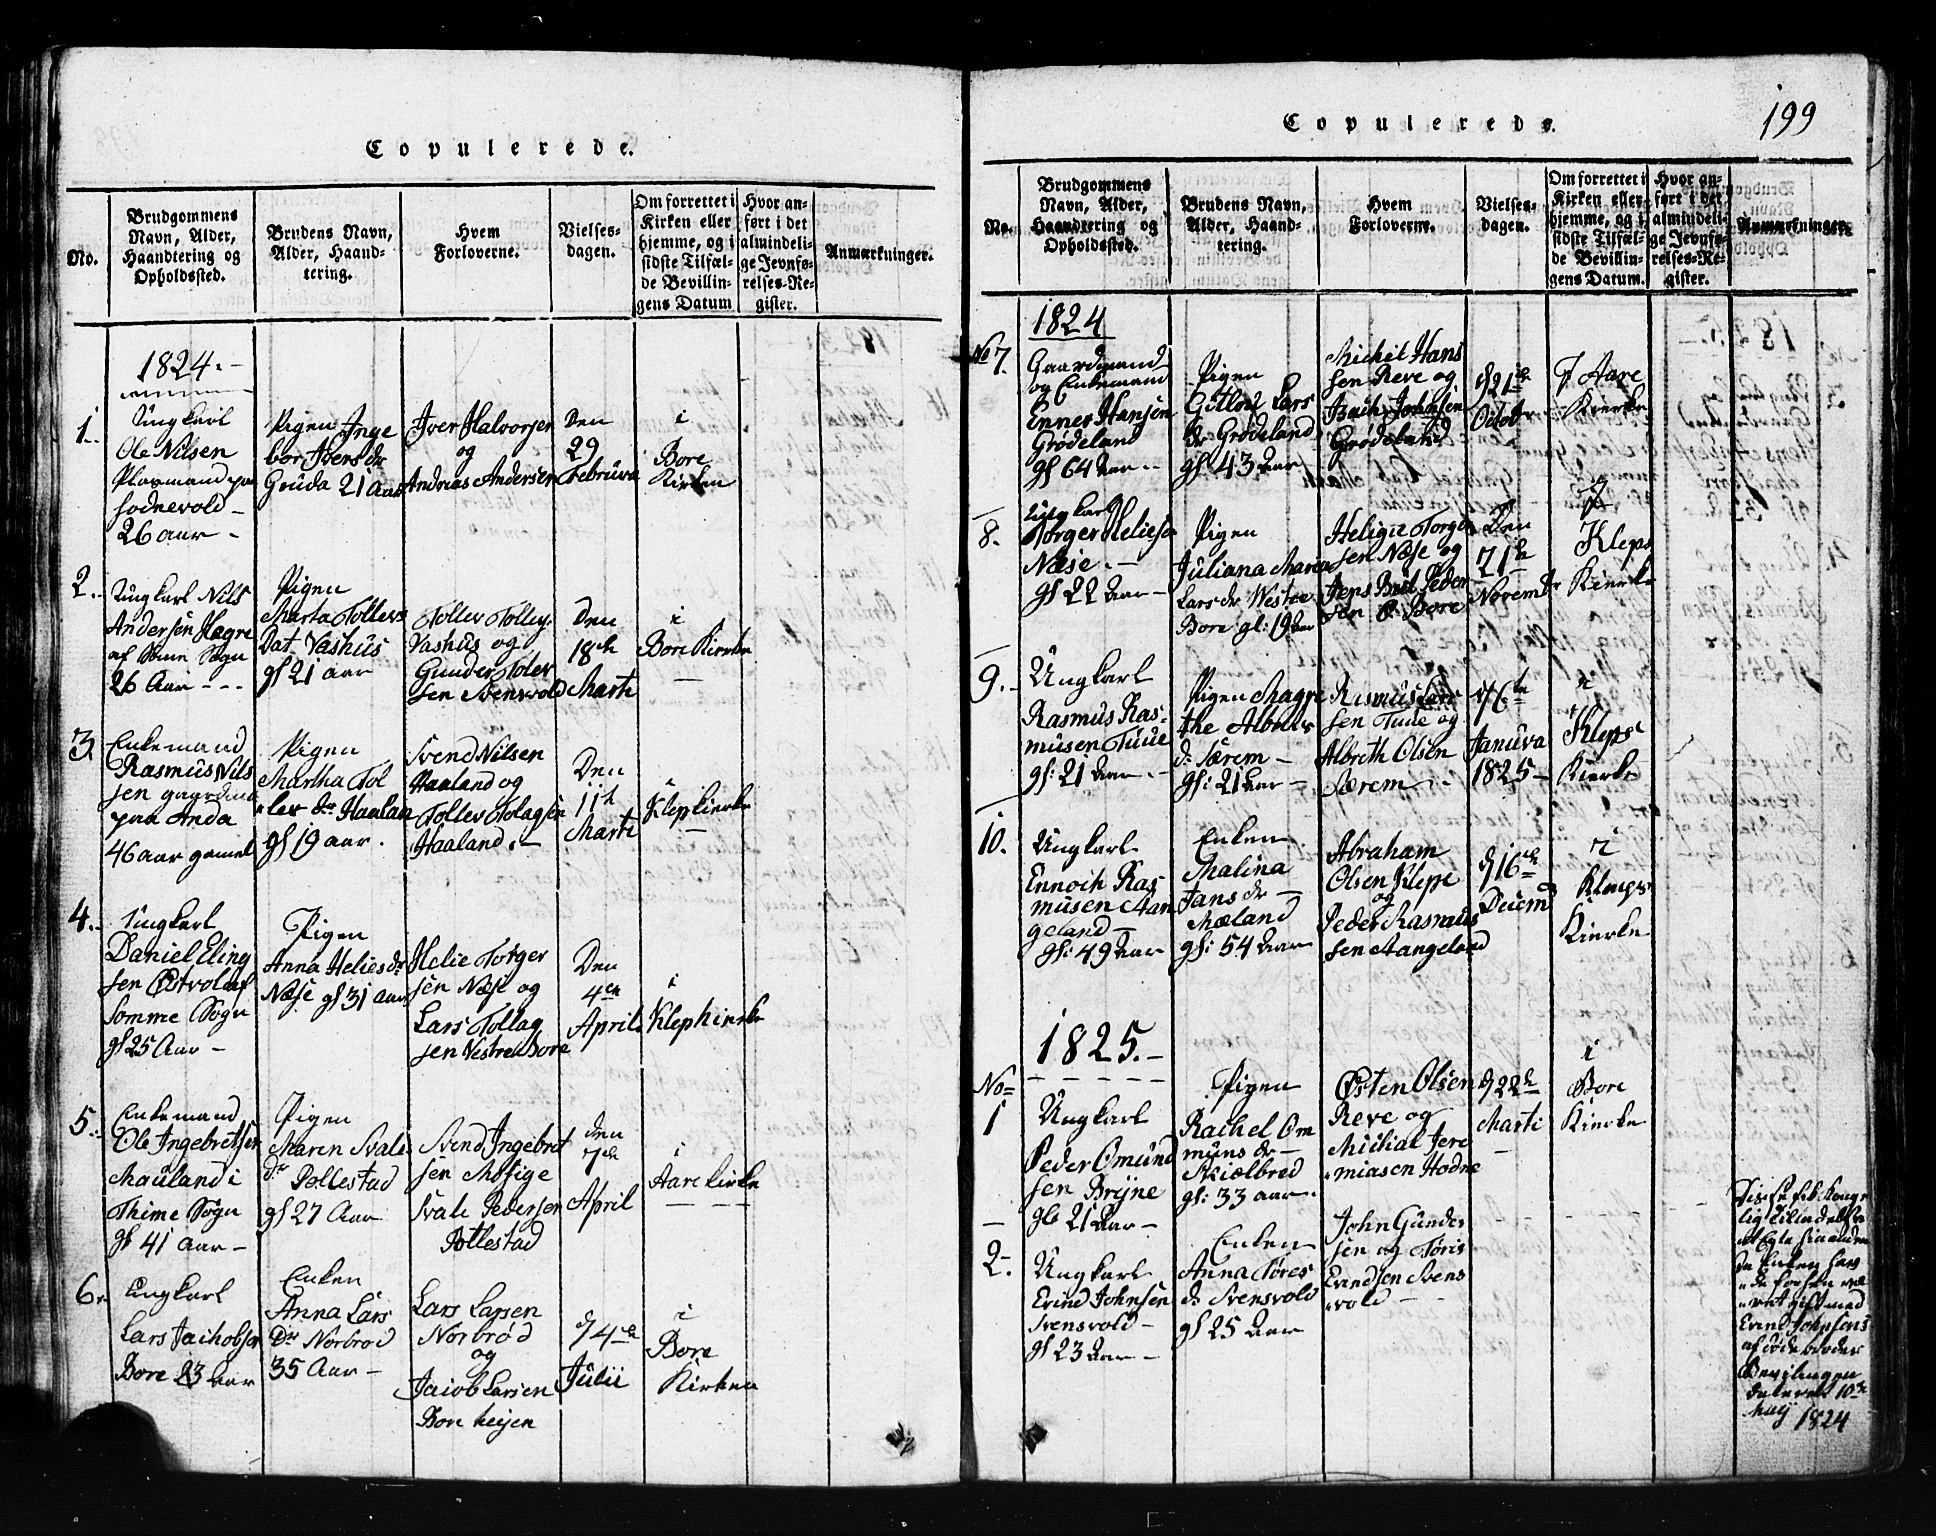 Copulerede.
No.
Brudgommens
Navn, Alder,
Haandtering og
Opholdssted.
Brudens Navn,
Alder, Haand-
tering.
Hvem
Forloverne.
Vielses-
dagen.
Om forrettet i
Kirken eller
hjemme, og i
sidste Tilfæl-
de Bevillin-
gens Datum
Hvor an-
ført i det
almindeli-
ge Jevnfø-
relses-Re-
gister.
Anmærkninger.
1824.-
1.
Ungkarl
Ole Nilsen
26 aar -
Pigen Inge
bor Ivers dr
Gruda 21 Aar
Iver Halvorsen
og
Andreas Andersen
Den
29
Februva
i
Bore
Kirken
2.
Ungkarl Nils
Andersen Hagre
af Sogn
26 Aar - - -
Pigen
Marta Tollevs
Dat Vashus
gl 21 aar
Tollev Tollev
Vashus og
Gunder Tolev
sen Svensvold
Den
18de
Marti
i
Bore Kierke
3.
Enkemand
Rasmus Nils
sen
paa Anda
46 aar gamel
Pigen
Martha Tol
lev dr Haalan
gl 19 aar.
Svend Nilsen
Haaland og
Tollev Tolagsen
Haaland.-
Den
11te
Marti
i
Klep kierke
4.
Ungkarl
Daniel Eling
sen Østvold af
Somme Sogn
gl 25 Aar -
Pigen
Anna Helies dr
Næse gl 31 aar
Helie Torger
sen Næse og
Lars Tollag
sen Vestre Bore
Den
4de
April
i
Klep kierke
5.
Enkemand
Ole Ingebretsen
Mauland i
Thime Sogn
gl 41 aar -
Pigen
Maren Svale
dr Pollestad
gl 27 Aar
Svend Ingebret
sen Mosige
Svale Pedersen
Pollestad
den
7de
April
i
Aare kirke
6.
Ungkarl
Lars Jachobsen
Bore 23 aar
Enken
Anna Lars
Dr Norbrod
35 Aar -
Lars Larsen
Norbrød
og
Jacob Larsen
Bore heijen
d 4de
Julii
i
Bore
Kirken
Copulerede.
199
No.
Brudgommens
Navn, Alder,
Haandtering og
Opholdssted.
Brudens Navn,
Alder, Haand-
tering.
Hvem
Forloverne.
Vielses-
dagen.
Om forrettet i
Kirken eller
hjemme, og i
sidste Tilfæl-
de Bevillin-
gens Datum.
Hvor an-
ført i det
almindeli-
ge Jevnfø-
relses-Re-
gister.
Anmærkninger.
1824
No 7.
Gaardmand
og Enkemand
Enner Hansen
Grødeland
gl 64 aar -
Pigen
Lars
dr Grødeland
gl 43 aar
Michel Hans
sen Reve og
Isach Johnsen
Grødeland
d 21de
Octobr
i Aare
Kierke
8.
Ungkarl
Torger Heliesen
Næse. -
gl 22 aar -
Pigen
Juliana Maria
Lars dr Westre
Bore gl: 19 aar
Helige Torger
sen Næse og
Jens Peder
sen Bore
Den
21de
Novembr
i
Kleps
Kierke
9.
Ungkarl
Rasmus Ras-
musen Tuue
gl: 21 aar -
Pigen Magre
the Albreths
dr Særem -
gl: 21 aar -
Rasmus Lars
sen Tuue og
Albreth Olsen
Særem -
d 6te
Januva
1825 -
i
Kleps
Kierke
10.
Ungkarl
Ennoch Ras
musen Aan
geland -
gl: 49 aar
Enken
Malina
Jans dr -
Mæland
gl: 54 aar
Abraham
Olsen Klepe
og
Peder Rasmus
sen Aangeland
d 16de
Decemb
i
Kleps
Kierke
1825.-
No
1
Ungkarl
Peder Omund
sen Bryne
gl 21 aar -
Pigen
Rachel Om
muns dr -
Skiælbred
gl: 33 aar.
Østen Olsen
Reve og
Michial Jere
miasen Hodne
d 22de
Marti
i
Bore
Kierke
2.
Ungkarl
Evind Johnsen
Svensvold -
gl 23 aar -
Enken
Anna Tøres
dr Svensvold
gl 25 aar
John Gunder
sen og Tøris
Evendsen Svens
vold -
Disse fik Konge
lig Tiladelse
at Egte hinanden
da Enken hav
de forhen væ
ret gift med
Evind Johnsens
afdøde broder
Bevilingen
dateret 10de
Maij 1824